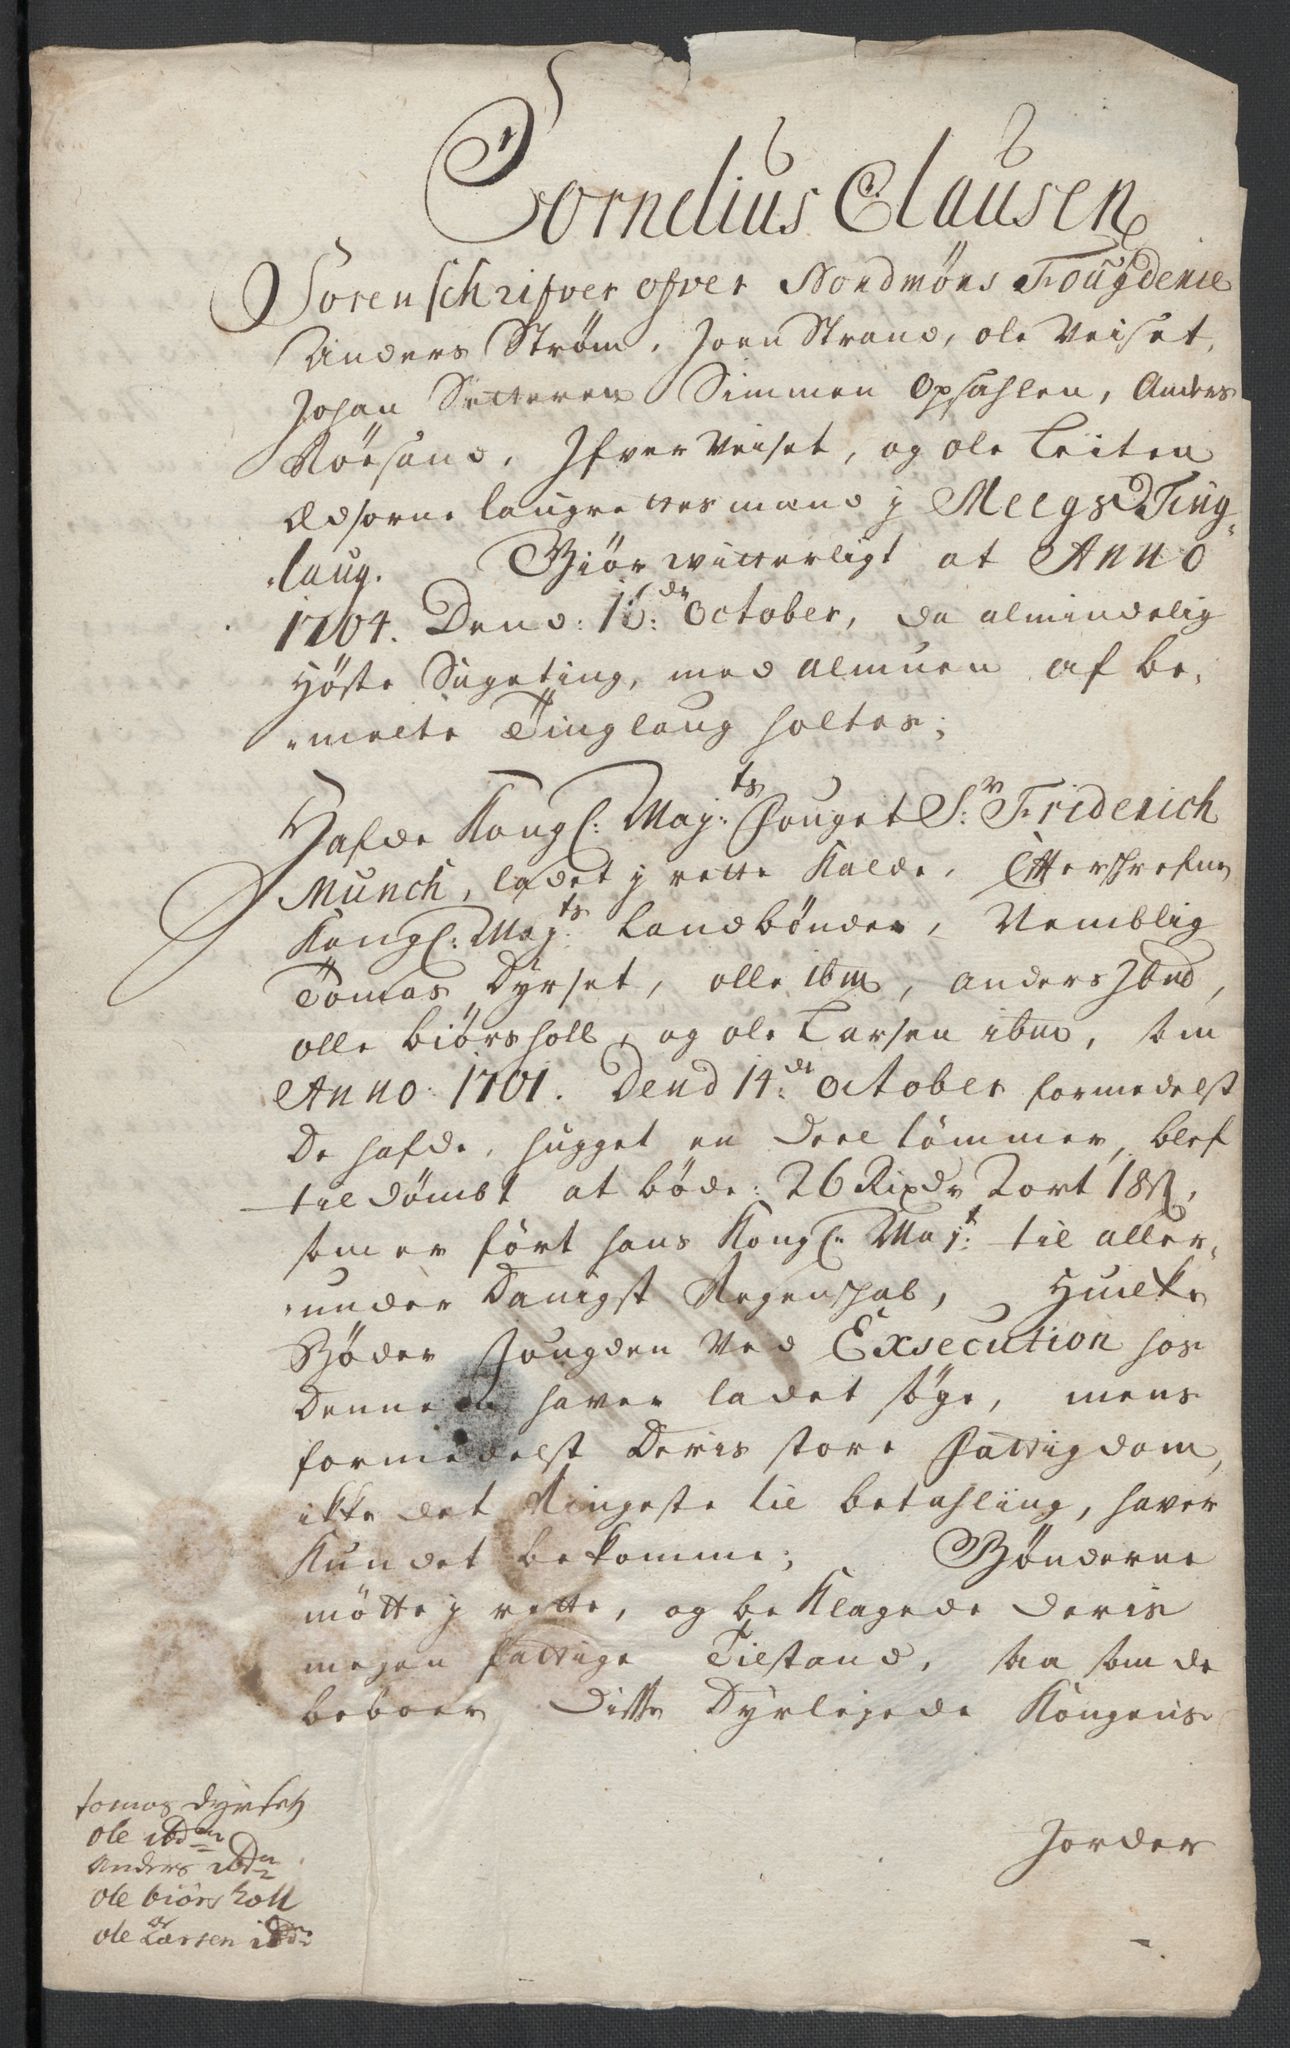 Cornelius Clausen
Sorenschrifver ofver Nordmørs Fougderie
Anders Strøm, Joen Strand, ole Veiset,
Johan Sætteren Simmen Opsahlen, Anders
Røesand, Ifver Veiset, og ole Leiten
Edsorne laugrettesmænd j Meegs Ting
laug. Giør witterligt at Anno
1704. Dend: 16: October, da almindelig
Høste Sageting, med almuen af be-
melte Tinglaug holtes;
Hafde Kongl: Maj:ts Fouget Sr: Friderich
Munch, ladet j rette Kalde, Efterschrefne
Kongl: Maj:ts Landbønder, Nemblig
Tomas Dyrset, olle ibm, anders Ibnd,
olle biørsholl, og ole Larsen ibm, som
Anno: 1701. Dend 14:de October formedelst
De hafde, hugget en deel tømmer, blef
tildømbt at bøde: 26 Rixdr 2 ort 18 s,
som er ført hans Kongl: Maj:t til aller-
under Danigst Regenschab, Huilke
Bøder Fougden Ved Exsecution hos
Dennem haver ladet søge, mens
formedelst Deris store Fattigdom,
ikke det Ringeste til betahling, haver
Kundet bekomme; Bønderne
møtte j rette, og be Klagede deris
megen fattige Tilstand, saa som de
beboer disse Dyrlejede Kongens
Jorder
tomas dyrsetz
ole ibdm
Anders ibdm
ole biørs holl
ole Larsen ibdm